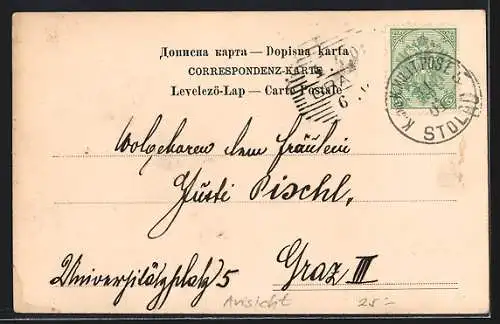 Дописна карта — Dopisna karta
CORRESPONDENZ-KARTE
Levelező-Lap — Carte Postale
K. u. K. MILIT. POST
STOLAC
Wolgeboren dem Fräulein
Justi Pischl,
Universitätsplatz 5
Graz III
Ansicht
25.-